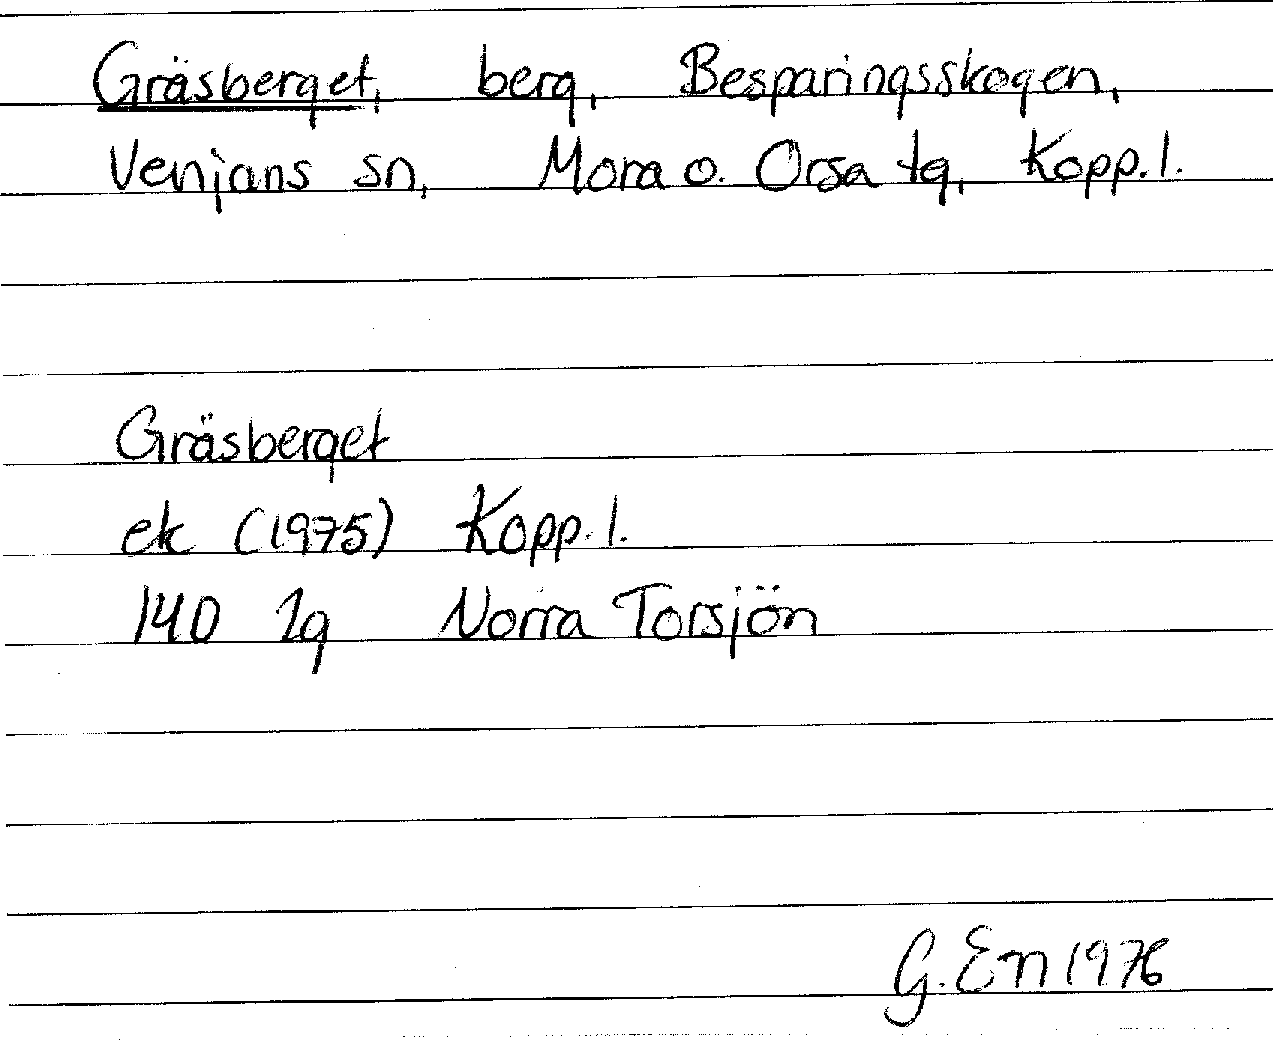 Gräsberget, berg, Besparingsskogen,
Venjans sn, Mora o. Orsa tg, Kopp.l.
Gräsberget
ek (1975) Kopp.l.
140 1g Norra Torsjön
G. En 1976